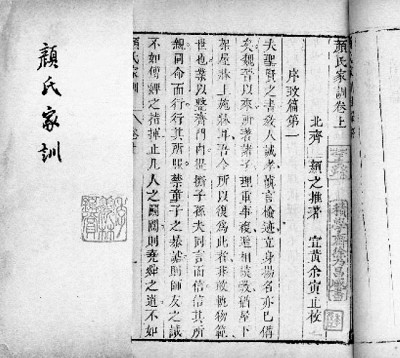 顏氏家訓
顏氏家訓卷上
北齊 顏之推著 宜黃余寅止校
積學齋徐乃昌藏書
序致篇第一
夫聖賢之書教人誠孝慎言檢迹立身揚名亦已備
矣魏晉以來所著諸子理重事複遞相模斆猶屋下
架屋牀上施牀耳吾今所以復爲此者非敢軌物範
世也業以整齊門內提撕子孫夫同言而信信其所
親同命而行行其所服禁童子之暴謔則師友之誡
不如傅婢之指揮止凡人之鬬鬩則堯舜之道不如
顏氏家訓 卷上
顏氏家訓